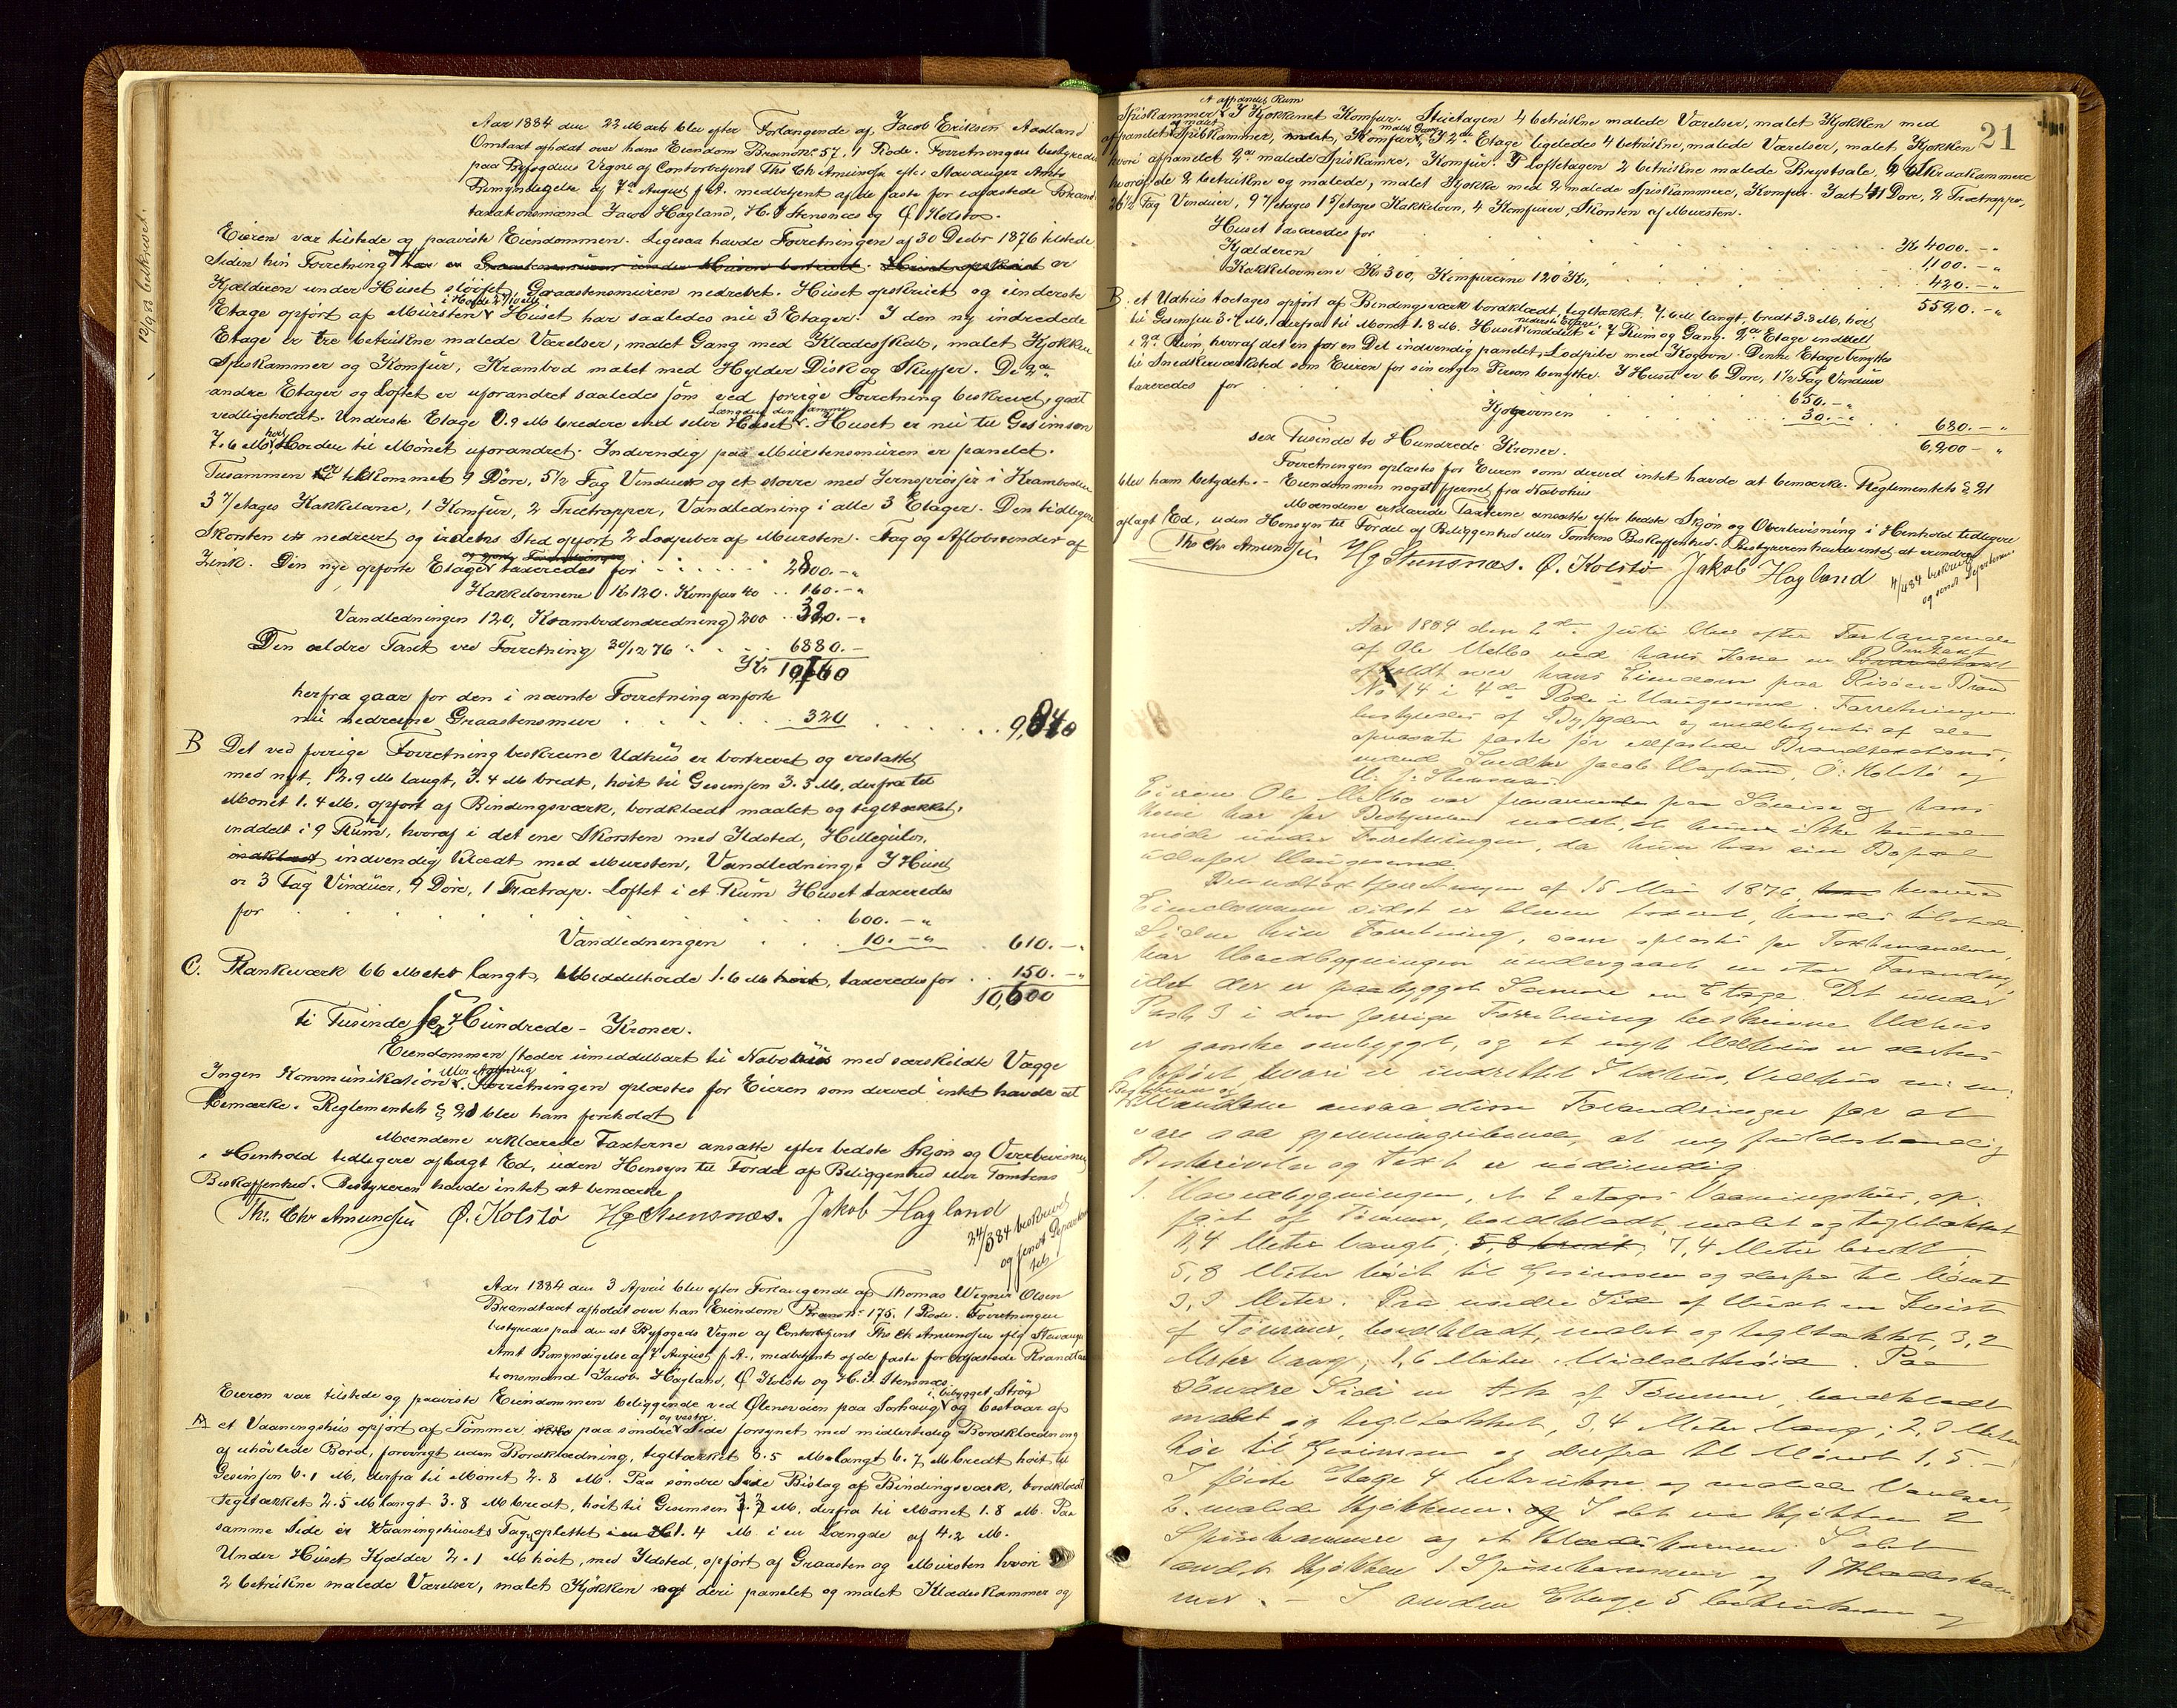 12/9 83 beskrevet.
Aar 1884 den 22 Marts blev efter Forlangende af Jacob Eriksen Aadland
Omtaxt afholdt over hans Eiendom Brandn: 57, 1 Rode. Forretningen bestyredes
paa Byfogdens Vegne af Contorbetjent Ths Ch Amundsen efter Stavanger Amts
Bemyndigelse af 7de August f. A. medbetjent af de faste for edfæstede Brand-
taxationsmænd Jacob Hagland, H. J. Stensnæs og Ø Kolstø.
Eieren var tilstede og paaviste Eiendommen. Ligesaa havde Forretningen af 30 Decbr 1876 tilstede.
Siden hin Forretning er
Kjælderen under Huset sløifet, Graastensmuren nedrevet. Huset opskruet og underste
Etage opført af Mursten Huset har saaledes nu 3 Etager. I den ny indredede
Etage er tre betrukne malede Værelser, malet Gang med Klædesskab, malet Kjøkken
Spiskammer og Komfur, Krambod malet med Hylder Disk og Skuffer. De 2de
andre Etager og Loftet er uforandret saaledes som ved forrige Forretning beskrevet, godt
vedligeholdt. Underste Etage 0.9 M bredere end selve Huset Længden den samme. Huset er nu til Gesimsen
7.6 M høit Høiden til Mønet uforandret. Indvendig paa Murstensmuren er panelet.
Tusammen er tilkommet 9 Døre, 5 1/2 Fag Vinduer og et større med Jernsprosser i Kramboden
3 7/etages Kakkelovne, 1 Komfur, 2 Trætrapper, Vandledning i alle 3 Etager. Den tidligere
Skorsten er nedrevet og i dets Sted opført 2 Lodpiber af Mursten. Tag og Afløbsrender af
Zink. Den nye opførte Etage taxeredes for 2800.- "
Kakkelovnene Kr 120. Komfur 40 .. 160.- "
Vandledningen 120, Krambodindredning 200 .. 320.- "
Den ældre Taxt ved Forretning 30/12 76 6880.-
Kr 10160
herfra gaar for den i nævnte Forretning anførte
nu nedrevne Graastensmur 320 9,840
B Det ved forrige Forretning beskrevne Udhus er bortrevet og erstattet
med nyt, 12.9 M langt, 3.4 M bredt, høit til Gesimsen 3.3 M, derfra til
Mønet 1.4 M, opført af Bindingsværk, bordklædt maalet og tegltækket,
inddelt i 9 Rum, hvoraf i det ene Skorsten med Ildsted, Hellegulv,
indvendig klædt med Mursten, Vandledning. I Huset
er 3 Fag Vinduer, 9 Døre, 1 Trætrap. Loftet i et Rum Huset taxeredes
for 600.- "
Vandledningen 10.- " 610.- "
C. Plankeværk 66 Meter langt, Middelhøide 1.6 M, taxeredes for .. 150.- "
10,600
ti Tusinde sex Hundrede - Kroner.
Eiendommen støder umiddelbart til Nabohus med særskildte Vægge
Ingen Kommunikation. Forretningen oplæstes for Eieren som derved intet havde at
bemærke. Reglementets § 21 blev ham foreholdt
Mændene erklærede Taxterne ansatte efter bedste Skjøn og Overbevisning
i Henhold tidligere aflagt Ed, uden Hensyn til Fordel af Beliggenhed eller Tomtens
Beskaffenhed. Bestyreren havde intet at bemærke
Ths. Chr Amundsen Ø. Kolstø HJ Stensnæs. Jakob Hagland
24/3 84 beskrevet
og sendt Departementet
Aar 1884 den 3 April blev efter Forlangende af Thomas Wegner Olsen
Brandtaxt afholdt over han Eiendom Brandn: 175. 1 Rode. Forretningen
bestyredes paa den cst Byfogeds Vegne af Contorbetjent Ths Ch Amundsen eflg Stavanger
Amts Bemyndigelse af 7 August f. A., medbetjent af de faste for edfæstede Brandtaxa-
tionsmænd Jacob Hagland, Ø Kolstø og H. J. Stensnæs.
Eieren var tilstede og paaviste Eiendommen beliggende ved Ølensveien paa Sørhaug i bebygget Strøg og bestaar af
A et Vaaningshus opført af Tømmer paa søndre og vestre Side forsynet med midlertidig Bordklædning
af uhøvlede Bord, forøvrigt uden Bordklædning, tegltækket 8.5 M langt 6.7 M bredt høit til
Gesimsen 6.1 M, derfra til Mønet 2.8 M. Paa søndre Side Bislag af Bindingsværk, bordklædt
tegltækket 2.5 M langt 3.8 M bredt, høit til Gesimsen M. derfra til Mønet 1.8 M. Paa
samme Side er Vaaningshusets Tag opløftet 1.4 M. i en Længde af 4.2 M.
Under Huset Kjælder 2.1 M høit, med Ildsted, opført af Graasten og Mursten hvori
2 betrukne malede Værelser, malet Kjøkken deri panelet og malet Klædeskammer og
21
Spiskammer & I Kjøkkenet Komfur. Stuetagen 4 betrukne malede Værelser, malet Kjøkken med
afpanelet Spiskammer, Komfur, I 2den Etage ligeledes 4 betrukne, malede Værelser, malet Kjøkken
hvori afpanelet 2de malede Spiskamre, Komfur. I Loftetagen 2 betrukne malede Brystsale, Kraakammere
hvoraf de 2 betrukne og malede, malet Kjøkke med 2 malede Spiskammere, Komfur. I alt Døre, 2 Trætrapper,
26 1/2 Fag Vinduer, 9 7/etages 1 5/etages Kakkelovn, 4 Komfurer, Skorsten af Mursten.
Huset taxeredes for Kr 4000.- "
Kjælderen 1,100.- "
Kakkelovnene Kr 300, Komfurerne 120 Kr, 420.- "
5520.- "
B. et Udhus toetages opført af Bindingsværk bordklædt, tegltækket 7.6 M langt, bredt 3.8 M, høi
til Gesimsen 3.7 M, derfra til Mønet 1.8 M. Huset underste Etage inddelt i 7 Rum og Gang. 2de Etage inddelt
i 2de Rum, hvoraf det en for en Del indvendig panelet, Lodpibe med Kogeovn. Denne Etage benyttes
til Snedkerværksted som Eieren for sin egen Person benytter. I Huset er 6 Døre, 1 1/2 Fag Vinduer
taxeredes for 650.- "
Kogeovnen 30.- " 680.- "
6,200 - "
sex Tusinde to Hundrede Kroner.
Forretningen oplæstes for Eieren som derved intet havde at bemærke. Reglementets § 21
blev ham betydet. - Eiendommen noget fjernet fra Nabohus
Mændene erklærede Taxterne ansatte efter bedste Skjøn og Overbevisning i Henhold tidligere
aflagt Ed, uden Hensyn til Fordel af Beliggenhed eller Tomtens Beskaffenhed. Bestyreren havde intet at erindre
Ths Chr Amundsen HJ Stensnæs. Ø. Kolstø Jakob Hagland
4/4 84 beskrevet
og sendt Departementet
Aar 1884 den 2den Juli blev efter Forlangende
af Ole Melbo ved hans Kone en Omtaxt
afholdt over hans Eiendom paa Risøen Brand
No 14 i 4de Rode i Haugesund. Forretningen
bestyredes af Byfogden og medbetjentes af de
opnævnte faste for edfæstede Brandtaxations-
mænd Snedker Jacob Hagland, Ø: Kolstø og
H. J. Stensnæs.
Eieren Ole Melbo var fraværende paa Søreise og hans
Kone har for Bestyreren meldt, at hun ikke kunde
møde under Forretningen, da hun har sin Bopæl
udenfor Haugesund.
Brandtaxtforretningen af 15 Mai 1876, hvorved
Eiendommen sidst er bleven taxeret, havdes tilstede.
Siden hin Forretning, som oplæstes for Taxtmændene,
har Hovedbygningen undergaaet en stor Forandring,
idet der er paabygget Samme en Etage. Det under
Post 3 i den forrige Forretning beskrevne Udhus
er ganske ombygget, og et nyt Udhus er derhos
opført hvori er indrettet Ildhus, Vedhus m: m:
Bestyreren og
Mændene ansaa disse Forandringer for at
være saa gjennemgribende, at ny fuldstændig
Beskrivelse og Taxt er nødvendig
1. Hovedbygningen, et 2 etages Vaaningshus, op-
ført af Tømmer, bordklædt, malet og tegltækket
11,4 Meter langt; 5,8 bredt; 7,4 Meter bredt,
5,8 Meter høit til Gesimsen og derfra til Mønet
3,3 Meter. Paa nordre Side af Huset en Kvist
af Tømmer, bordklædt, malet og tegltækket, 3,2
Meter lang, 1,6 Meter Middelhøide. Paa
søndre Side en Ark af Tømmer, bordklædt
malet og tegltækket, 3,4 Meter lang; 2,3 Meter
høi til Gesimsen og derfra til Mønet 1,5.-
I første Etage 4 betrukne og malede Værelser,
2 malede Kjøkkener. I det ene Kjøkken 2
Spisekammere og et Klædekammer. I det
andet Kjøkken 1 Spisekammer og 1 Klædeskam-
mer. - I anden Etage 5 betrukne og